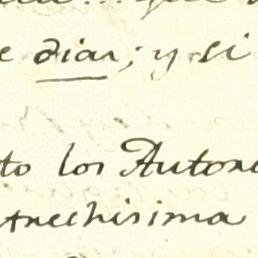 e dias; y si
to los Autore
strechisima